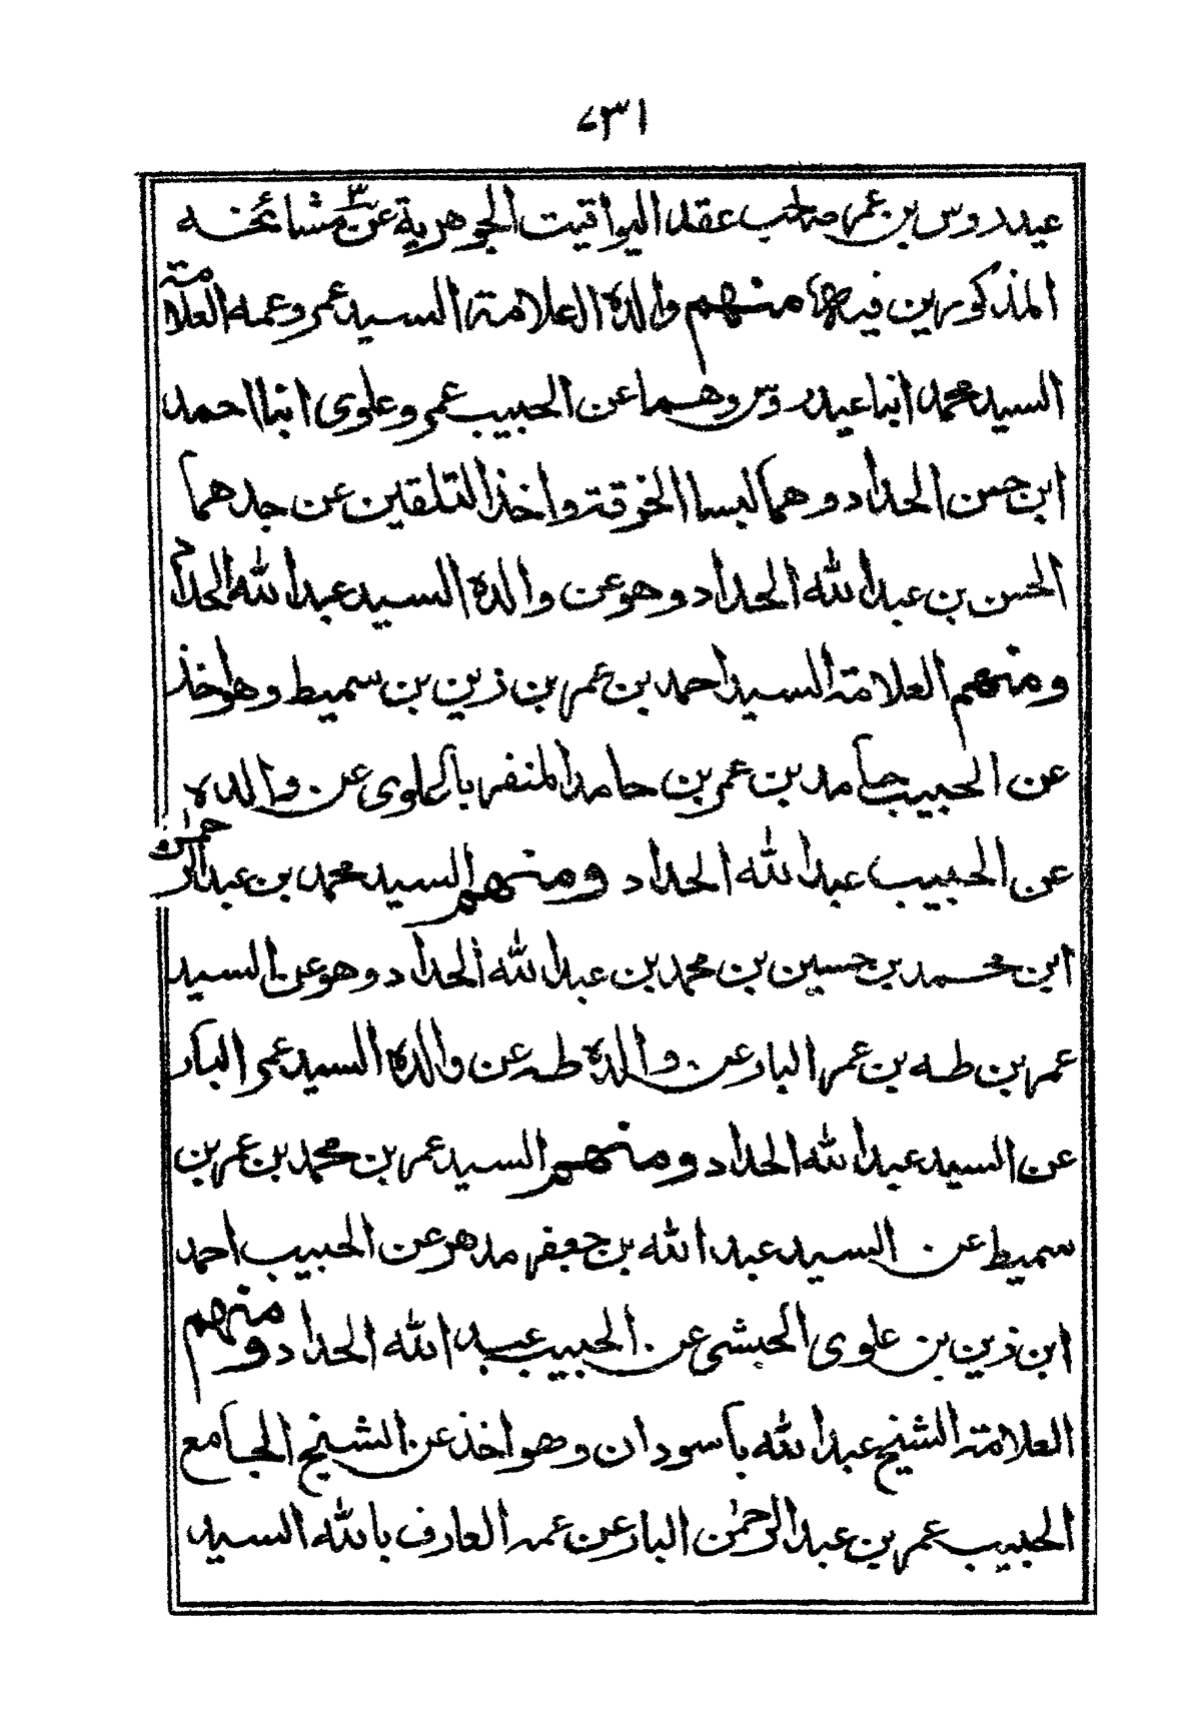 ١٣٤
عيدروس بن عمر صاحب عقد اليواقيت الجوهرية عن ٣ مشائخه
المذكورين فيها منهم والده العلامة السيد عمر وعمه العلامة
السيد محمد ابنا عيدروس وهما عن الحبيب عمر وعلوي ابنا احمد
ابن حسن الحداد وهما لبسا الخرقة واخذ التلقين عن جدهما
الحسن بن عبد الله الحداد وهو عن والده السيد عبد الله الحداد
ومنهم العلامة السيد احمد بن عمر بن زين بن سميط وهو اخذ
عن الحبيب حامد بن عمر بن حامد المنفر باعلوى عن والده
عن الحبيب عبد الله الحداد ومنهم السيد محمد بن عبد الرحمن
ابن محمد بن حسين بن محمد بن عبد الله الحداد وهو عن السيد
عمر بن طه بن عمر البار عن والده طه عن والده السيد عمر البار
عن السيد عبد الله الحداد ومنهم السيد عمر بن محمد بن عمر بن
سميط عن السيد عبد الله بن جعفر مدهر عن الحبيب احمد
ابن زين بن علوى الحبشى عن الحبيب عبد الله الحداد ومنهم
العلامة الشيخ عبد الله باسودان وهو اخذ عن الشيخ الجامع
الحبيب عمر بن عبد الرحمن البار عن عمه العارف بالله السيد